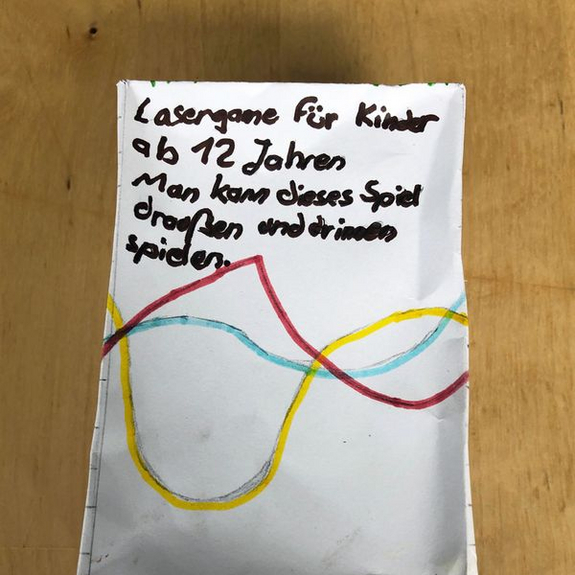 Lasergame für Kinder
ab 12 Jahren
Man kann dieses Spiel
draußen und drinnen
spielen.